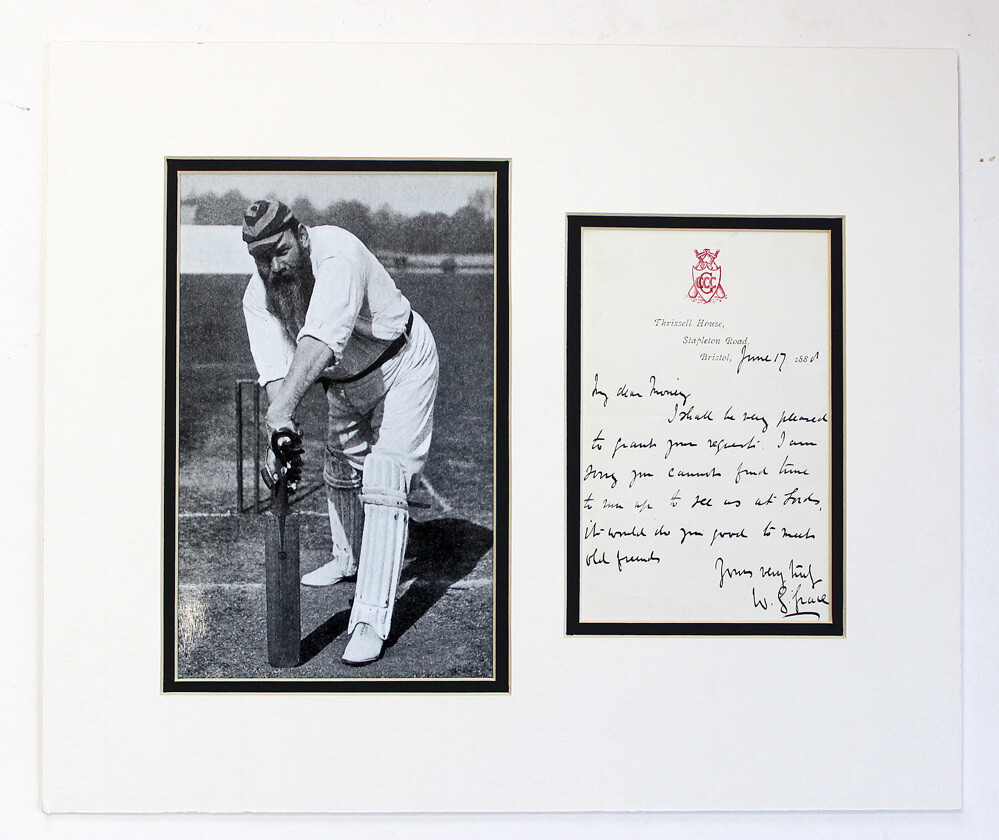 GCCC
Thrissell House,
Stapleton Road,
Bristol, June 17 188
My dear
I shall be very pleased
to grant your request. I am
sorry you cannot find time
to run up to see us at Lords,
it would do you good to meet
old friends
Yours very truly
W. G. Grace